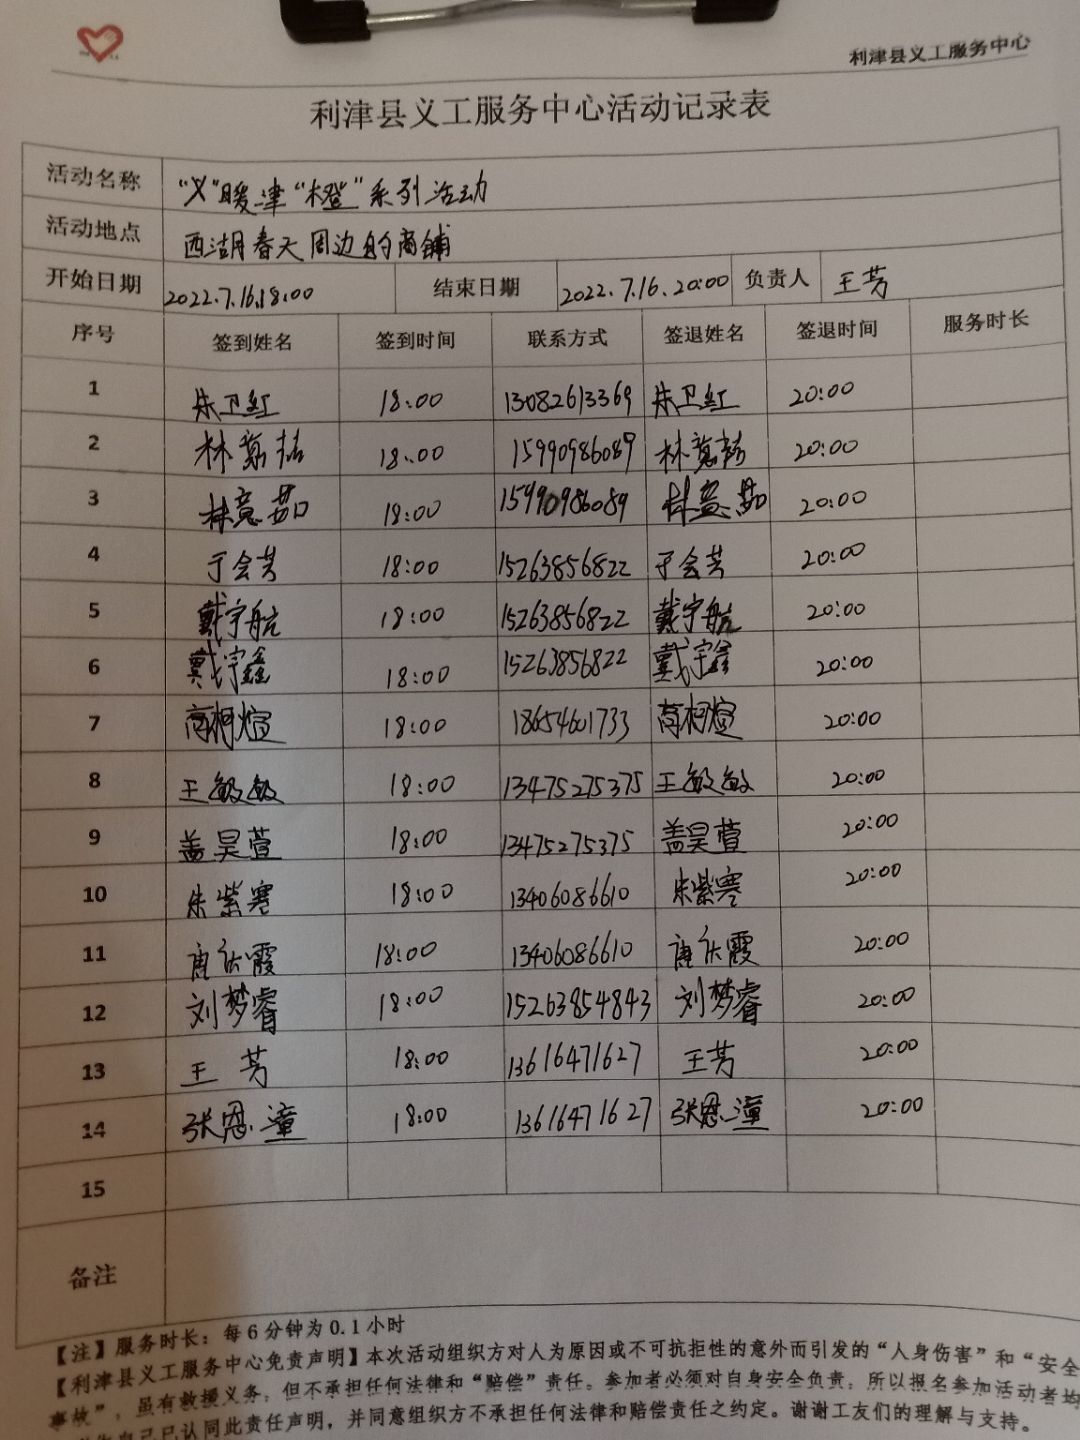 利津县义工服务中心
利津县义工服务中心活动记录表
活动名称 “义”暖津“橙”系列活动
活动地点 西湖春天周边的商铺
开始日期 2022.7.16.18:00 结束日期 2022.7.16.20:00 负责人 王芳
序号 签到姓名 签到时间 联系方式 签退姓名 签退时间 服务时长
1 朱卫红 18:00 13082613369 朱卫红 20:00
2 林 18:00 15990986089 林 20:00
3 林意茹 18:00 15990986089 林意茹 20:00
4 于会芳 18:00 15263856822 于会芳 20:00
5 戴宇航 18:00 15263856822 戴宇航 20:00
6 戴宇鑫 18:00 15263856822 戴宇鑫 20:00
7 高柯煊 18:00 18654601733 高柯煊 20:00
8 王敏敏 18:00 13475275375 王敏敏 20:00
9 盖昊萱 18:00 13475275375 盖昊萱 20:00
10 朱紫寒 18:00 13406086610 朱紫寒 20:00
11 唐 霞 18:00 13406086610 唐 霞 20:00
12 刘梦睿 18:00 15263854843 刘梦睿 20:00
13 王芳 18:00 13616471627 王芳 20:00
14 张恩潼 18:00 13616471627 张恩潼 20:00
15
备注
【注】服务时长：每6分钟为0.1小时
【利津县义工服务中心免责声明】本次活动组织方对人为原因或不可抗拒性的意外而引发的“人身伤害”和“安全
事故”，虽有救援义务，但不承担任何法律和“赔偿”责任。参加者必须对自身安全负责，所以报名参加活动者均
自己已认同此责任声明，并同意组织方不承担任何法律和赔偿责任之约定。谢谢工友们的理解与支持。